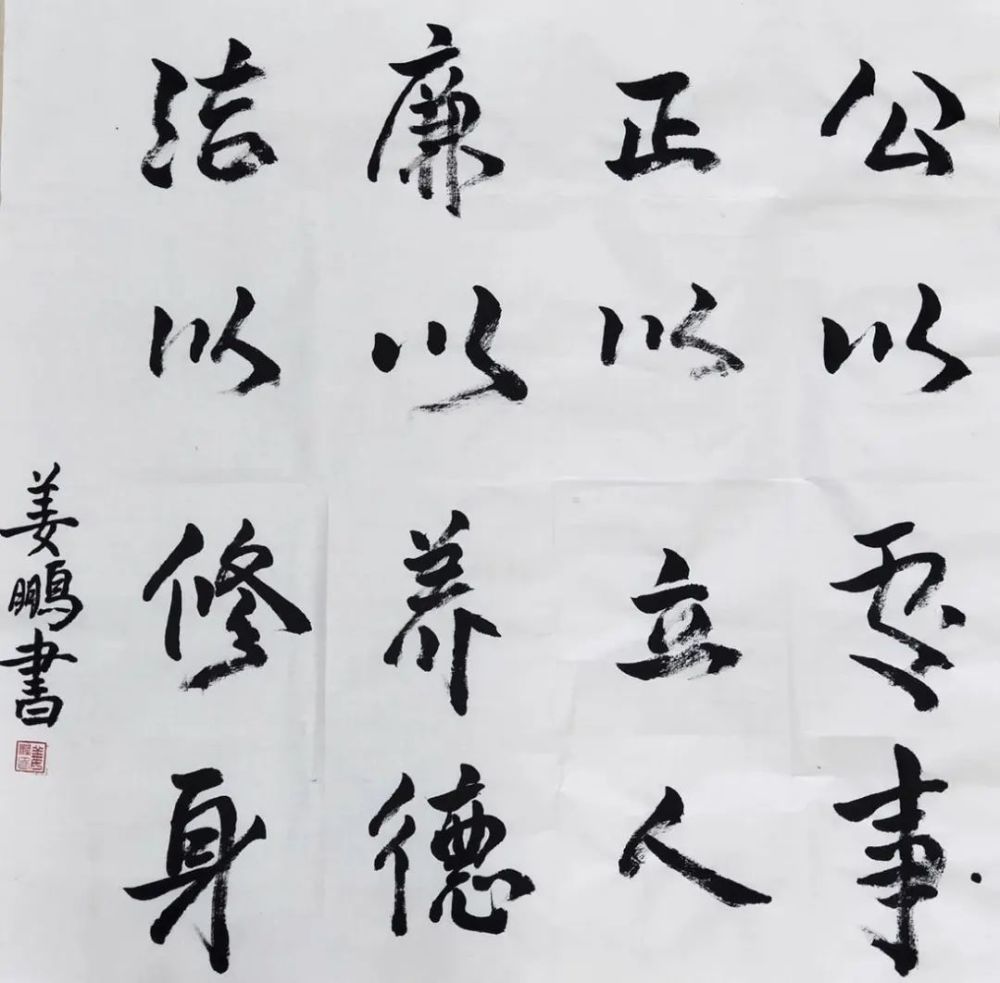 公以處事
正以立人
廉以养德
洁以修身
姜鵬書